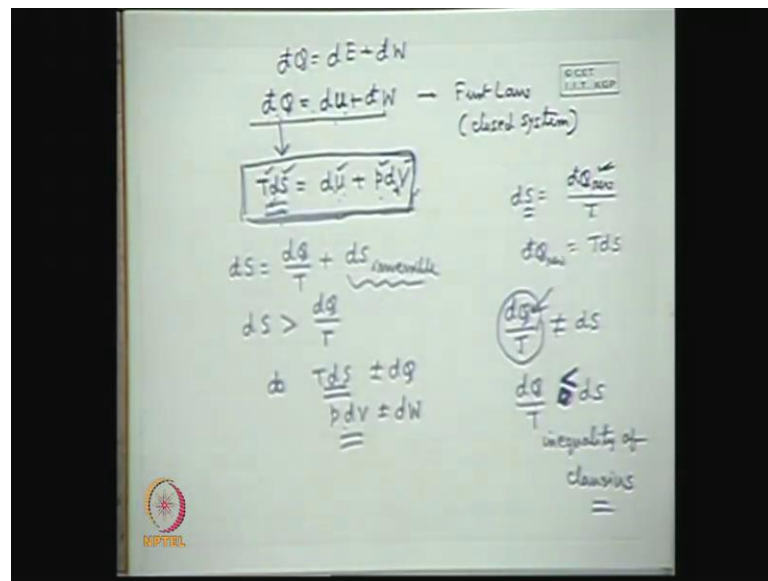 đQ = dE + dW
đQ = dU + đW → First Law
(closed system)
© CET
I.I.T. KGP
TdS = dU + pdV
dS = dQrev / T
đQrev = TdS
dS = dQ/T + dS irreversible
dS > dQ/T
dQ/T ≠ dS
TdS ≠ dQ
pdV ≠ dW
dQ/T ≤ dS
inequality of
clausius
NPTEL